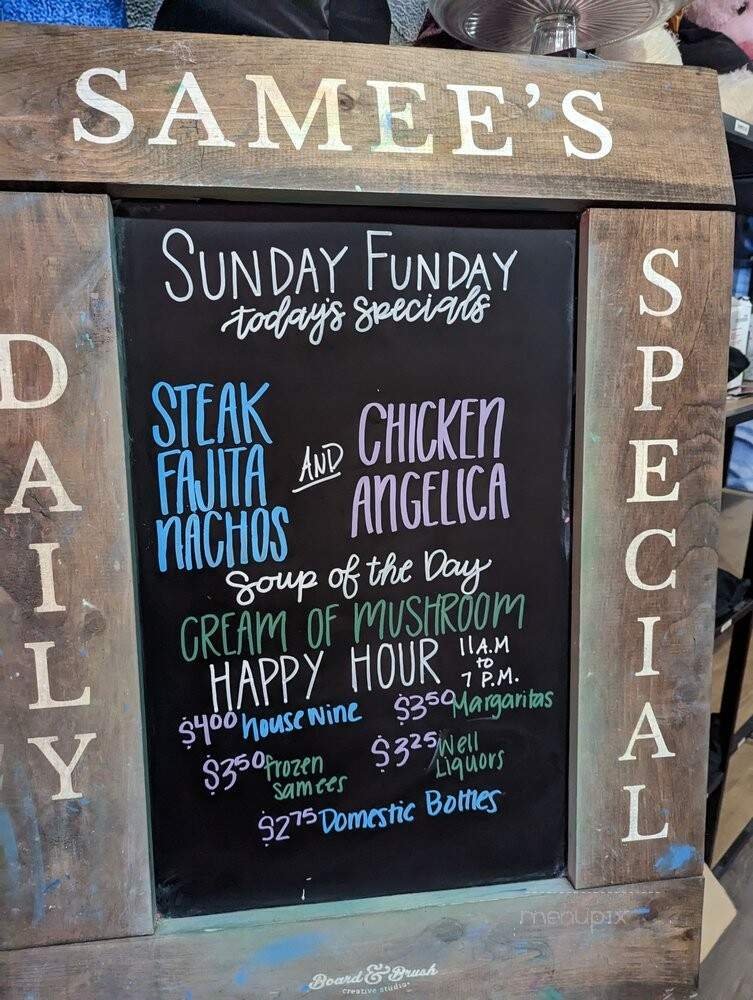 SAMEE'S
DAILY
SPECIAL
SUNDAY FUNDAY
today's specials
STEAK
FAJITA
NACHOS
AND
CHICKEN
ANGELICA
Soup of the Day
CREAM OF MUSHROOM
HAPPY HOUR 11A.M
to
7 P.M.
$400 house Wine
$350 Margaritas
$350 frozen
samees
$325 Well
Liquors
$275 Domestic Bottles
menupix
Board & Brush
creative studio